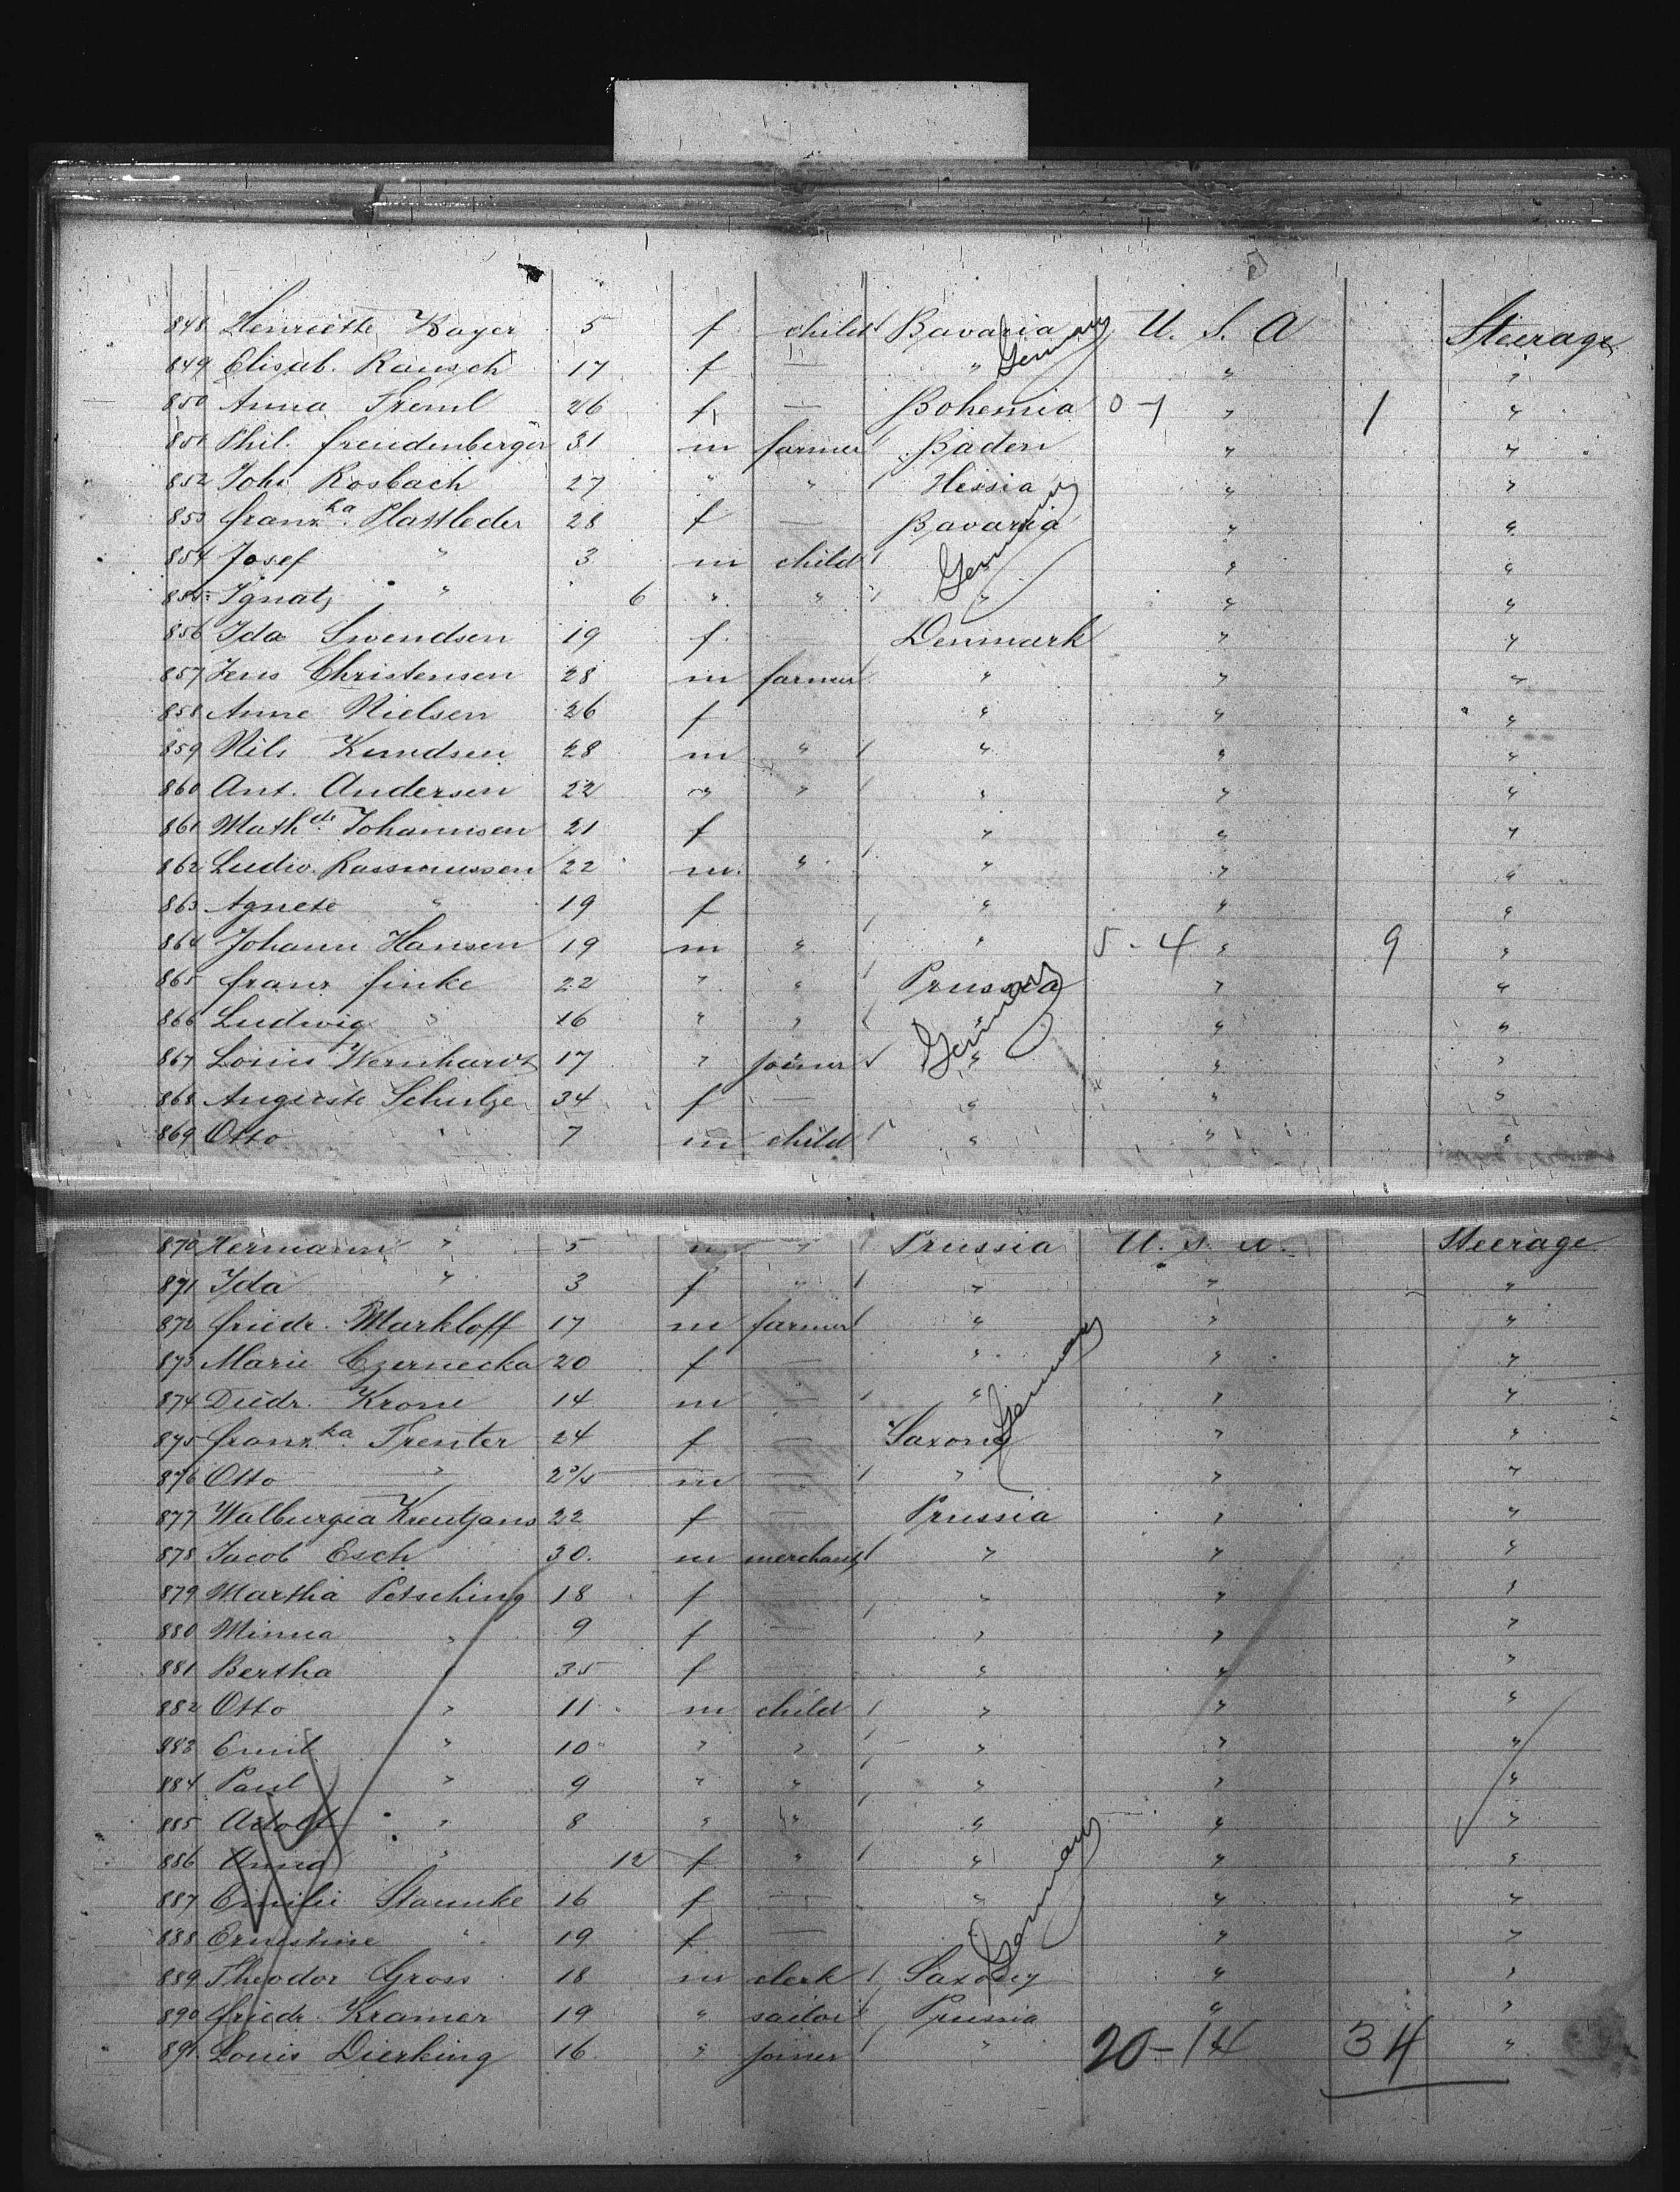 848 Henriette Kayer 5 f child Bavaria U. S. A Steerage
849 Elisab. Rausch 17 f — " Germany " "
850 Anna Treml 26 f — Bohemia 0-1 " 1 "
851 Phil. Freudenberger 31 m farmer Baden " "
852 Joh. Rosbach 27 " " Hessia " "
853 Franz.ka Plattleder 28 f — Bavaria " "
854 Josef " 3 m child Germany " "
855 Ignatz " 6 " " " " "
856 Ida Swendsen 19 f. — Denmark " "
857 Jens Christensen 28 m farmer " " "
858 Anne Nielsen 26 f " " "
859 Nils Knudsen 28 m " " " "
860 Ant. Andersen 22 " " " " "
861 Math.de Johannsen 21 f " " "
862 Ludw. Rassmussen 22 m. " " " "
863 Agnete " 19 f " " "
864 Johann Hansen 19 m " " 5-4 " 9 "
865 Franz Finke 22 " " Prussia " "
866 Ludwig " 16 " " " Germany " "
867 Louis Wernhardt 17 " joiner " " "
868 Auguste Schulze 34 f — " " "
869 Otto " 7 m child " " "
870 Hermann " 5 m " Prussia U. S. A. Steerage
871 Ida " 3 f " " " "
872 Friedr. Markloff 17 m farmer " " "
873 Marie Czernecka 20 f — " " "
874 Diedr. Krone 14 m — " Germany " "
875 Franz.ka Trenter 24 f — Saxony " "
876 Otto " 2 m — " " "
877 Walburgia Kreutjans 22 f — Prussia " "
878 Jacob Esch 30. m merchant " " "
879 Martha Petsching 18 f — " " "
880 Minna " 9 f — " " "
881 Bertha " 35 f — " " "
882 Otto " 11 m child " " "
883 Emil " 10 " " " " "
884 Paul " 9 " " " " "
885 Adolf " 8 " " " " "
886 Anna " 12 f " " " "
887 Emilie Staunke 16 f — " Germany " "
888 Ernestine " 19 f — " " "
889 Theodor Gross 18 m clerk Saxony " "
890 Friedr. Kramer 19 " sailor Prussia " "
891. Louis Dierking 16 " joiner " 20-14 34 "